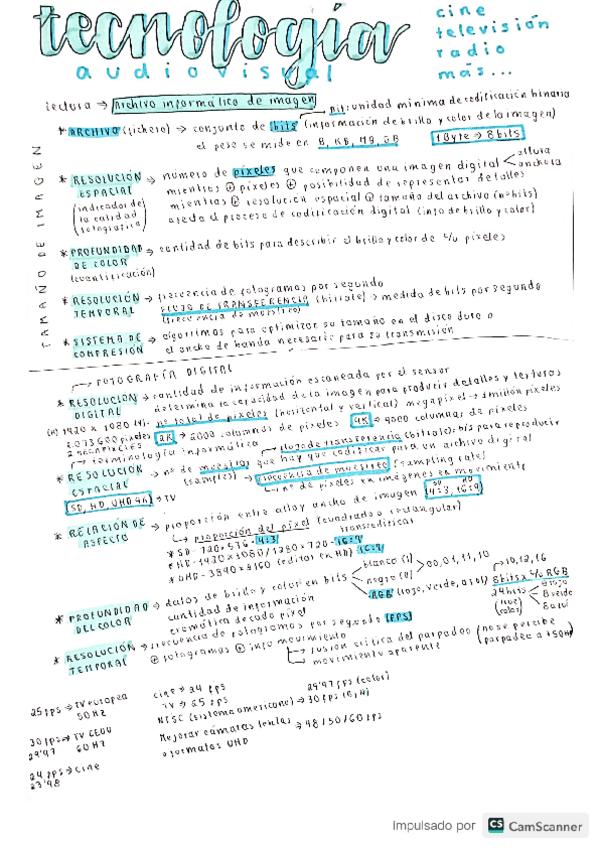 tecnología
audiovisual
cine
televisión
radio
más...
lectura → archivo informático de imagen
bit: unidad mínima de codificación binaria
* ARCHIVO (fichero) → conjunto de bits (información de brillo y color de la imagen)
el peso se mide en B, KB, MB, GB
1 Byte → 8 bits
TAMAÑO DE IMAGEN
* RESOLUCIÓN ESPACIAL → número de píxeles que componen una imagen digital < altura anchura
(indicador de la calidad fotográfica)
mientras ⊕ píxeles ⊕ posibilidad de representar detalles
mientras ⊕ resolución espacial ⊕ tamaño del archivo (nº bits)
afecta el proceso de codificación digital (info de brillo y color)
* PROFUNDIDAD DE COLOR → cantidad de bits para describir el brillo y color de c/u píxeles
(cuantificación)
* RESOLUCIÓN TEMPORAL → frecuencia de fotogramas por segundo
FLUJO DE TRANSFERENCIA (bitrate) → medida de bits por segundo
(frecuencia de muestreo)
* SISTEMA DE COMPRESIÓN → algoritmos para optimizar su tamaño en el disco duro o
el ancho de banda necesario para su transmisión
FOTOGRAFÍA DIGITAL
* RESOLUCIÓN DIGITAL → cantidad de información escaneada por el sensor
determina la capacidad de la imagen para producir detalles y texturas
1920 x 1080 → nº total de píxeles (horizontal y vertical) megapixel → 1 millón píxeles
2.073.600 píxeles 2K → 2000 columnas de píxeles 4K → 4000 columnas de píxeles
terminología informática
flujo de transferencia (bitrate): bits para reproducir
* RESOLUCIÓN ESPACIAL → nº de muestras que hay que codificar para un archivo digital
(samples) → frecuencia de muestreo (sampling rate)
SD, HD, UHD 4K → TV
nº de píxeles en imágenes en movimiento
* RELACIÓN DE ASPECTO → proporción entre alto y ancho de imagen
SD HD
4:3, 16:9
proporción del píxel (cuadrado o rectangular)
* SD - 720x576 - 4:3
* HD - 1920x1080 / 1280x720 - 16:9
* UHD - 3840x2160 (editar en HD) 16:9
* PROFUNDIDAD DEL COLOR → datos de brillo y color en bits
cantidad de información
cromática de cada píxel
blanco (1)
negro (0)
00, 01, 11, 10
RGB (rojo, verde, azul)
10, 12, 16
8 bits x c/u RGB
24 bits
8 rojo
8 verde
8 azul
* RESOLUCIÓN TEMPORAL → frecuencia de fotogramas por segundo (FPS)
⊕ fotogramas ⊕ info movimiento
fusión crítica del parpadeo (no se percibe
parpadeo a +50Hz)
movimiento aparente
25 fps → TV europea
50 Hz
30 fps → TV EEUU
29'97 60 Hz
24 fps → cine
23'98
cine → 24 fps
TV → 25 fps
29'97 fps (color)
NTSC (sistema americano) → 30 fps
Mejorar cámaras lentas → 48/50/60 fps
o formatos UHD
Impulsado por CS CamScanner